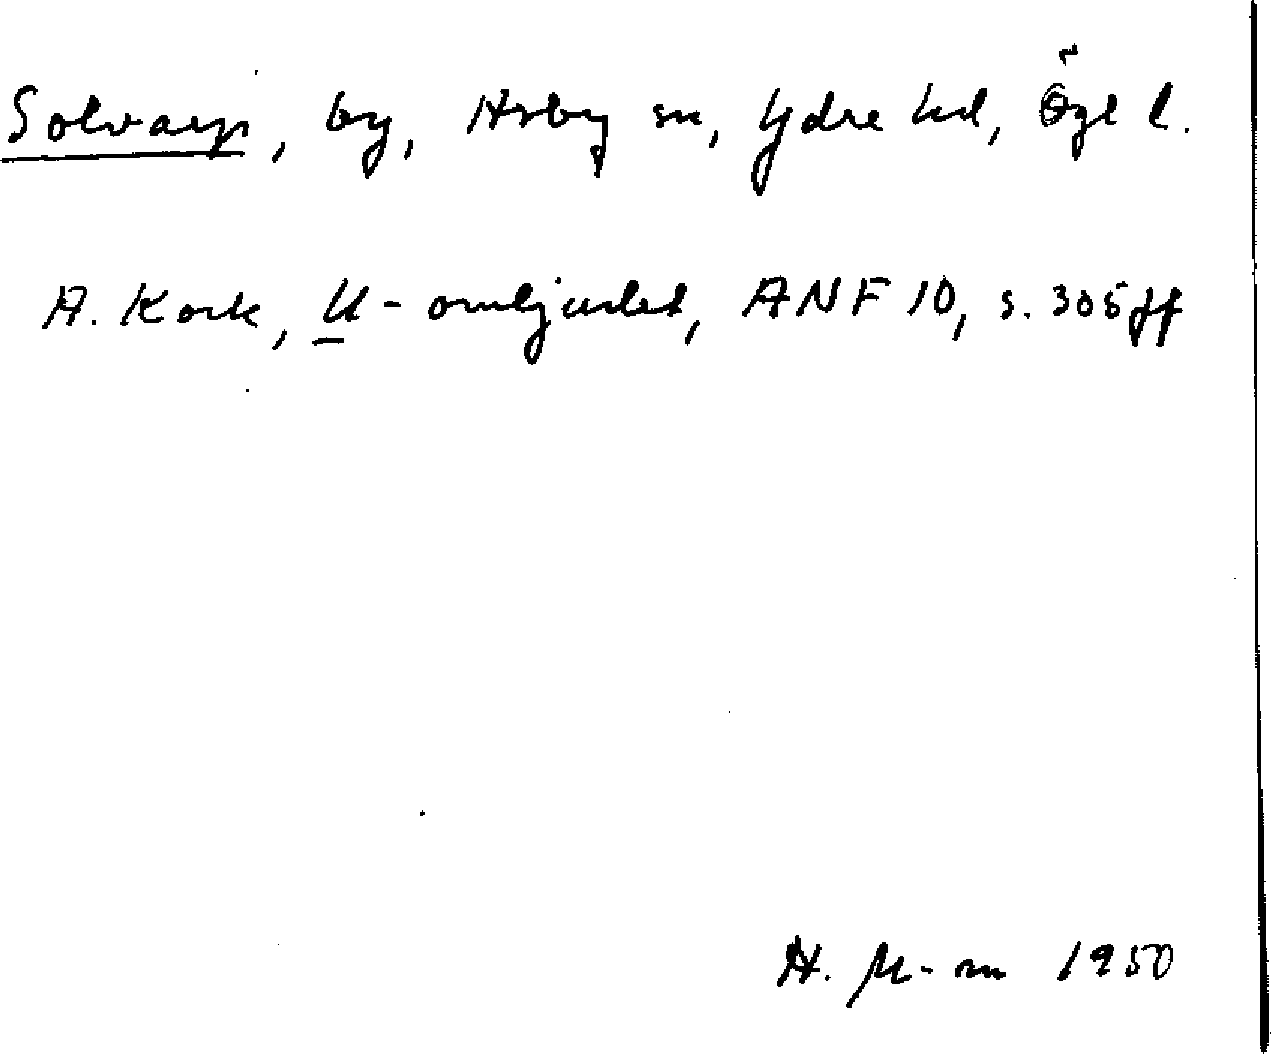 Solvarp, by, Asby sn, Ydre hd, Ögl l.
A. Kock, U-omljudet, ANF 10, s. 305 ff
H. M-m 1950